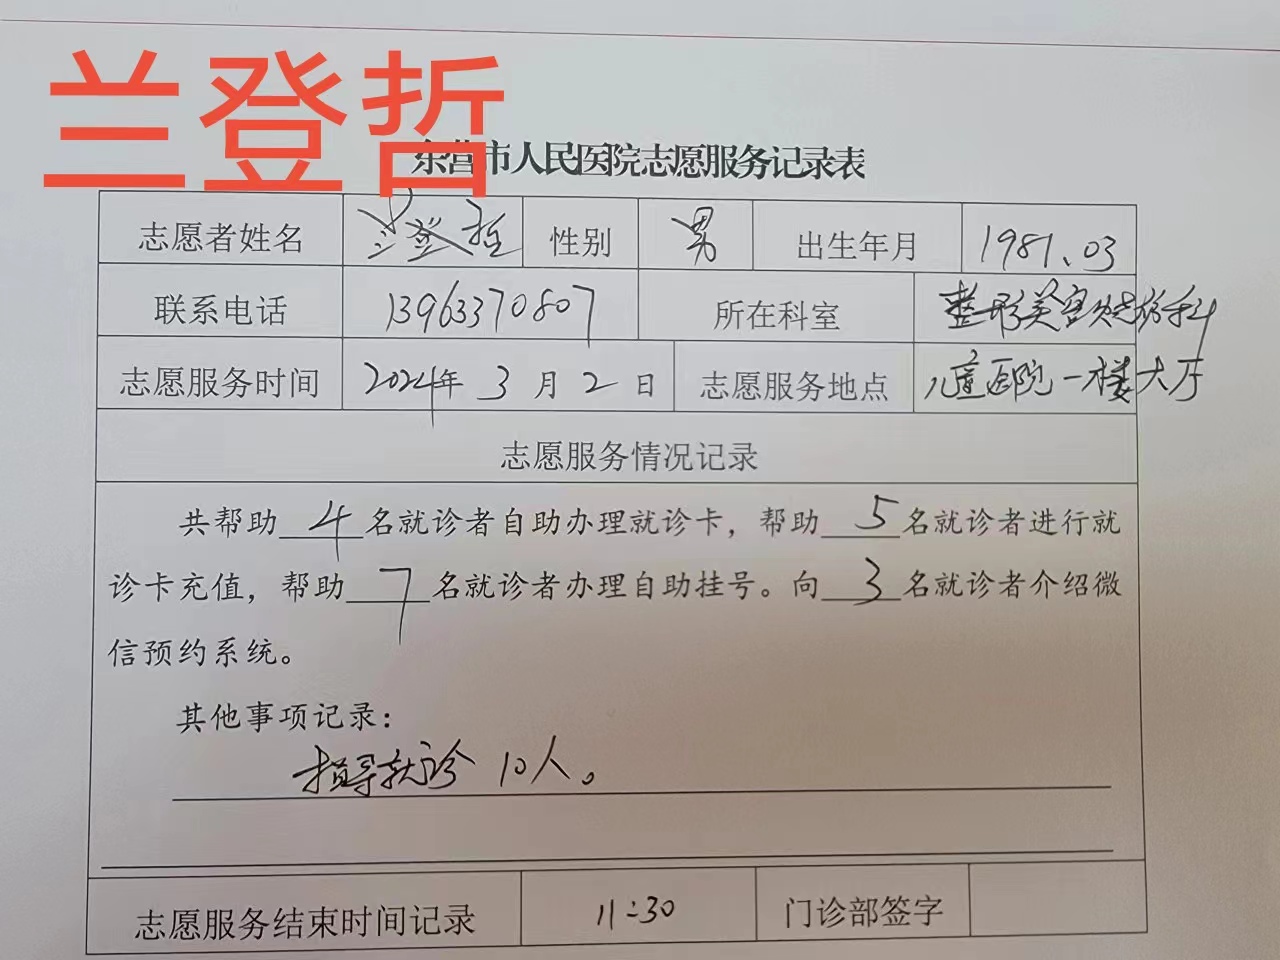 兰登哲
东营市人民医院志愿服务记录表
志愿者姓名 兰登哲 性别 男 出生年月 1981.03
联系电话 13963370807 所在科室 整形美容烧伤科
志愿服务时间 2024年 3 月 2 日 志愿服务地点 儿童医院一楼大厅
志愿服务情况记录
共帮助 4 名就诊者自助办理就诊卡，帮助 5 名就诊者进行就
诊卡充值，帮助 7 名就诊者办理自助挂号。向 3 名就诊者介绍微
信预约系统。
其他事项记录：
指导就诊 10人。
志愿服务结束时间记录 11:30 门诊部签字